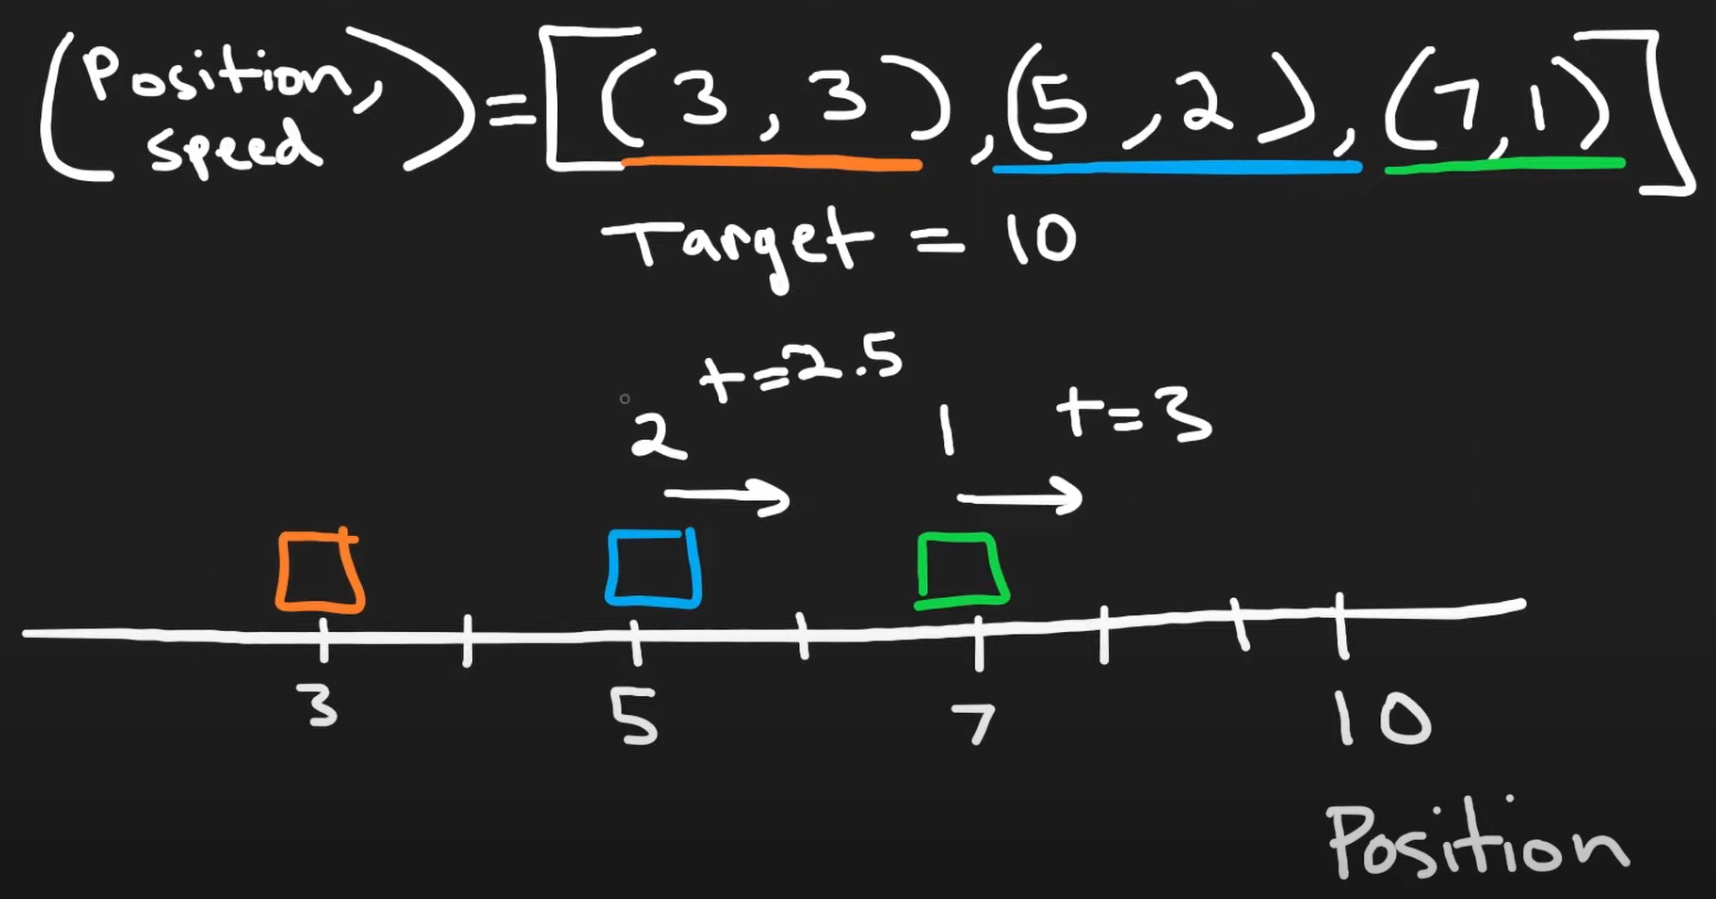 (Position, speed) = [(3, 3), (5, 2), (7, 1)]
Target = 10
t=2.5
2
1
t=3
3 5 7 10
Position